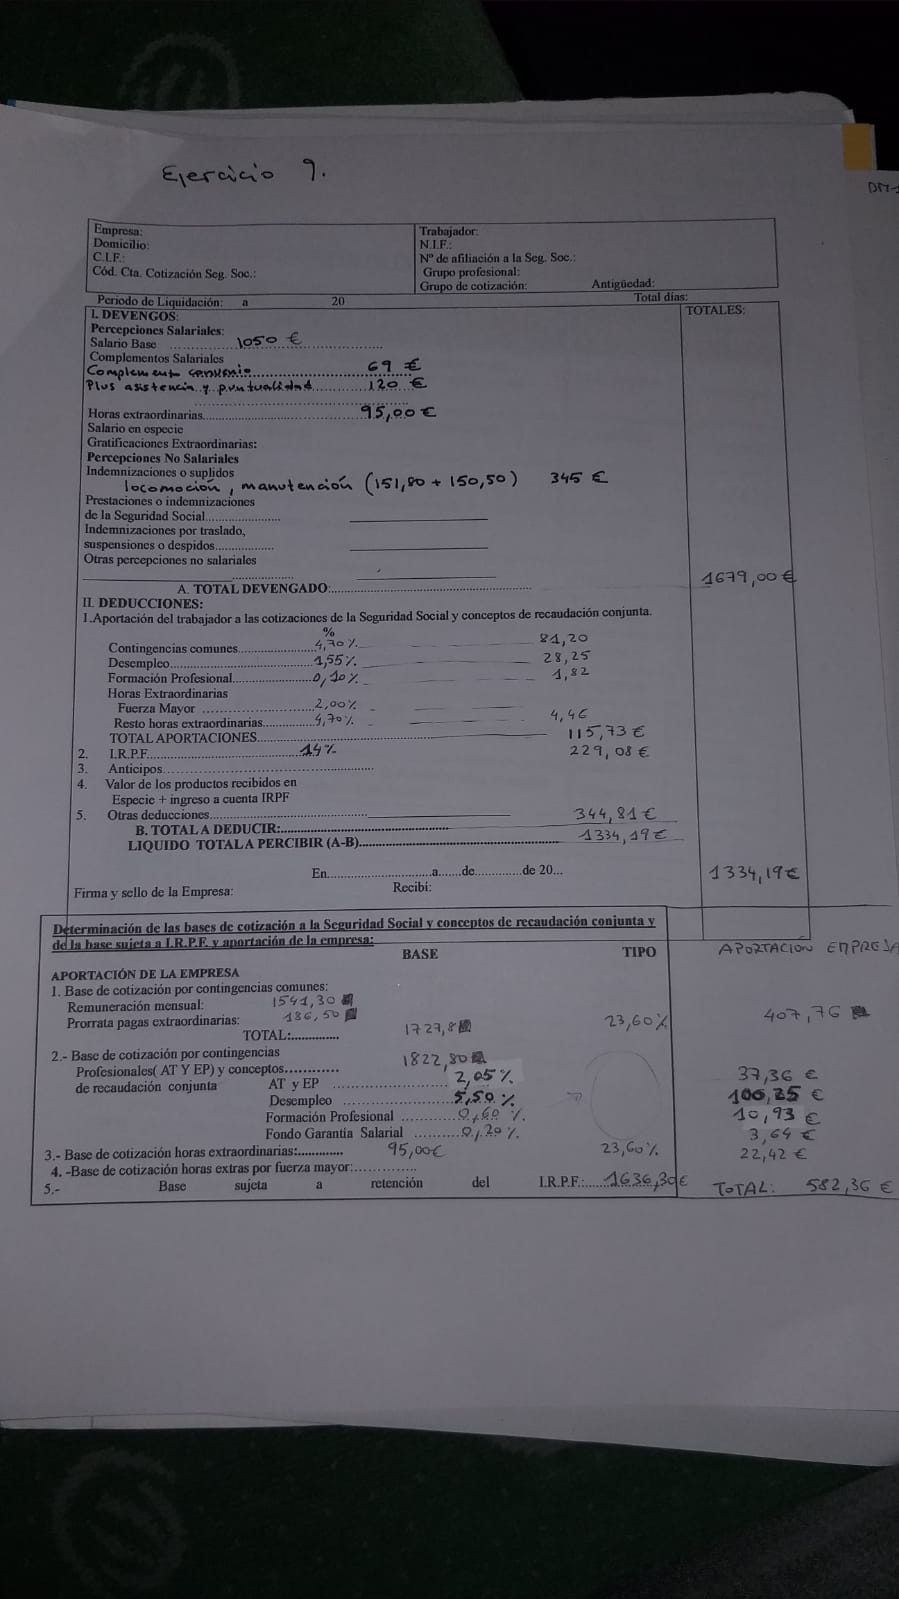 Ejercicio 9.
DM-1
Empresa:
Domicilio:
C.I.F.:
Cód. Cta. Cotización Seg. Soc.:
Trabajador:
N.I.F.:
Nº de afiliación a la Seg. Soc.:
Grupo profesional:
Grupo de cotización: Antigüedad:
Periodo de Liquidación: a 20 Total días:
I. DEVENGOS: TOTALES:
Percepciones Salariales:
Salario Base 1050 €
Complementos Salariales
Complemento convenio 69 €
Plus asistencia y puntualidad 120 €
Horas extraordinarias 95,00 €
Salario en especie
Gratificaciones Extraordinarias:
Percepciones No Salariales
Indemnizaciones o suplidos
locomoción, manutención (151,80 + 150,50) 345 €
Prestaciones o indemnizaciones
de la Seguridad Social
Indemnizaciones por traslado,
suspensiones o despidos
Otras percepciones no salariales
A. TOTAL DEVENGADO: 1679,00 €
II. DEDUCCIONES:
1.Aportación del trabajador a las cotizaciones de la Seguridad Social y conceptos de recaudación conjunta.
%
Contingencias comunes 4,70% 81,20
Desempleo 1,55% 28,25
Formación Profesional 0,10% 1,82
Horas Extraordinarias
Fuerza Mayor 2,00%
Resto horas extraordinarias 4,70% 4,46
TOTAL APORTACIONES 115,73 €
2. I.R.P.F. 14% 229,08 €
3. Anticipos
4. Valor de los productos recibidos en
Especie + ingreso a cuenta IRPF
5. Otras deducciones
B. TOTAL A DEDUCIR: 344,81 €
LIQUIDO TOTAL A PERCIBIR (A-B) 1334,19 €
En a de de 20... 1334,19 €
Firma y sello de la Empresa: Recibí:
Determinación de las bases de cotización a la Seguridad Social y conceptos de recaudación conjunta y
de la base sujeta a I.R.P.F. y aportación de la empresa:
BASE TIPO APORTACIÓN EMPRESA
APORTACIÓN DE LA EMPRESA
1. Base de cotización por contingencias comunes:
Remuneración mensual: 1541,30
Prorrata pagas extraordinarias: 186,50
TOTAL: 1727,8 23,60% 407,76
2.- Base de cotización por contingencias 1822,80
Profesionales( AT Y EP) y conceptos
de recaudación conjunta AT y EP 2,05% 37,36 €
Desempleo 5,50% 100,25 €
Formación Profesional 0,60% 10,93 €
Fondo Garantía Salarial 0,20% 3,64 €
3.- Base de cotización horas extraordinarias: 95,00€ 23,60% 22,42 €
4. -Base de cotización horas extras por fuerza mayor:
5.- Base sujeta a retención del I.R.P.F: 1636,30€ TOTAL: 582,36 €